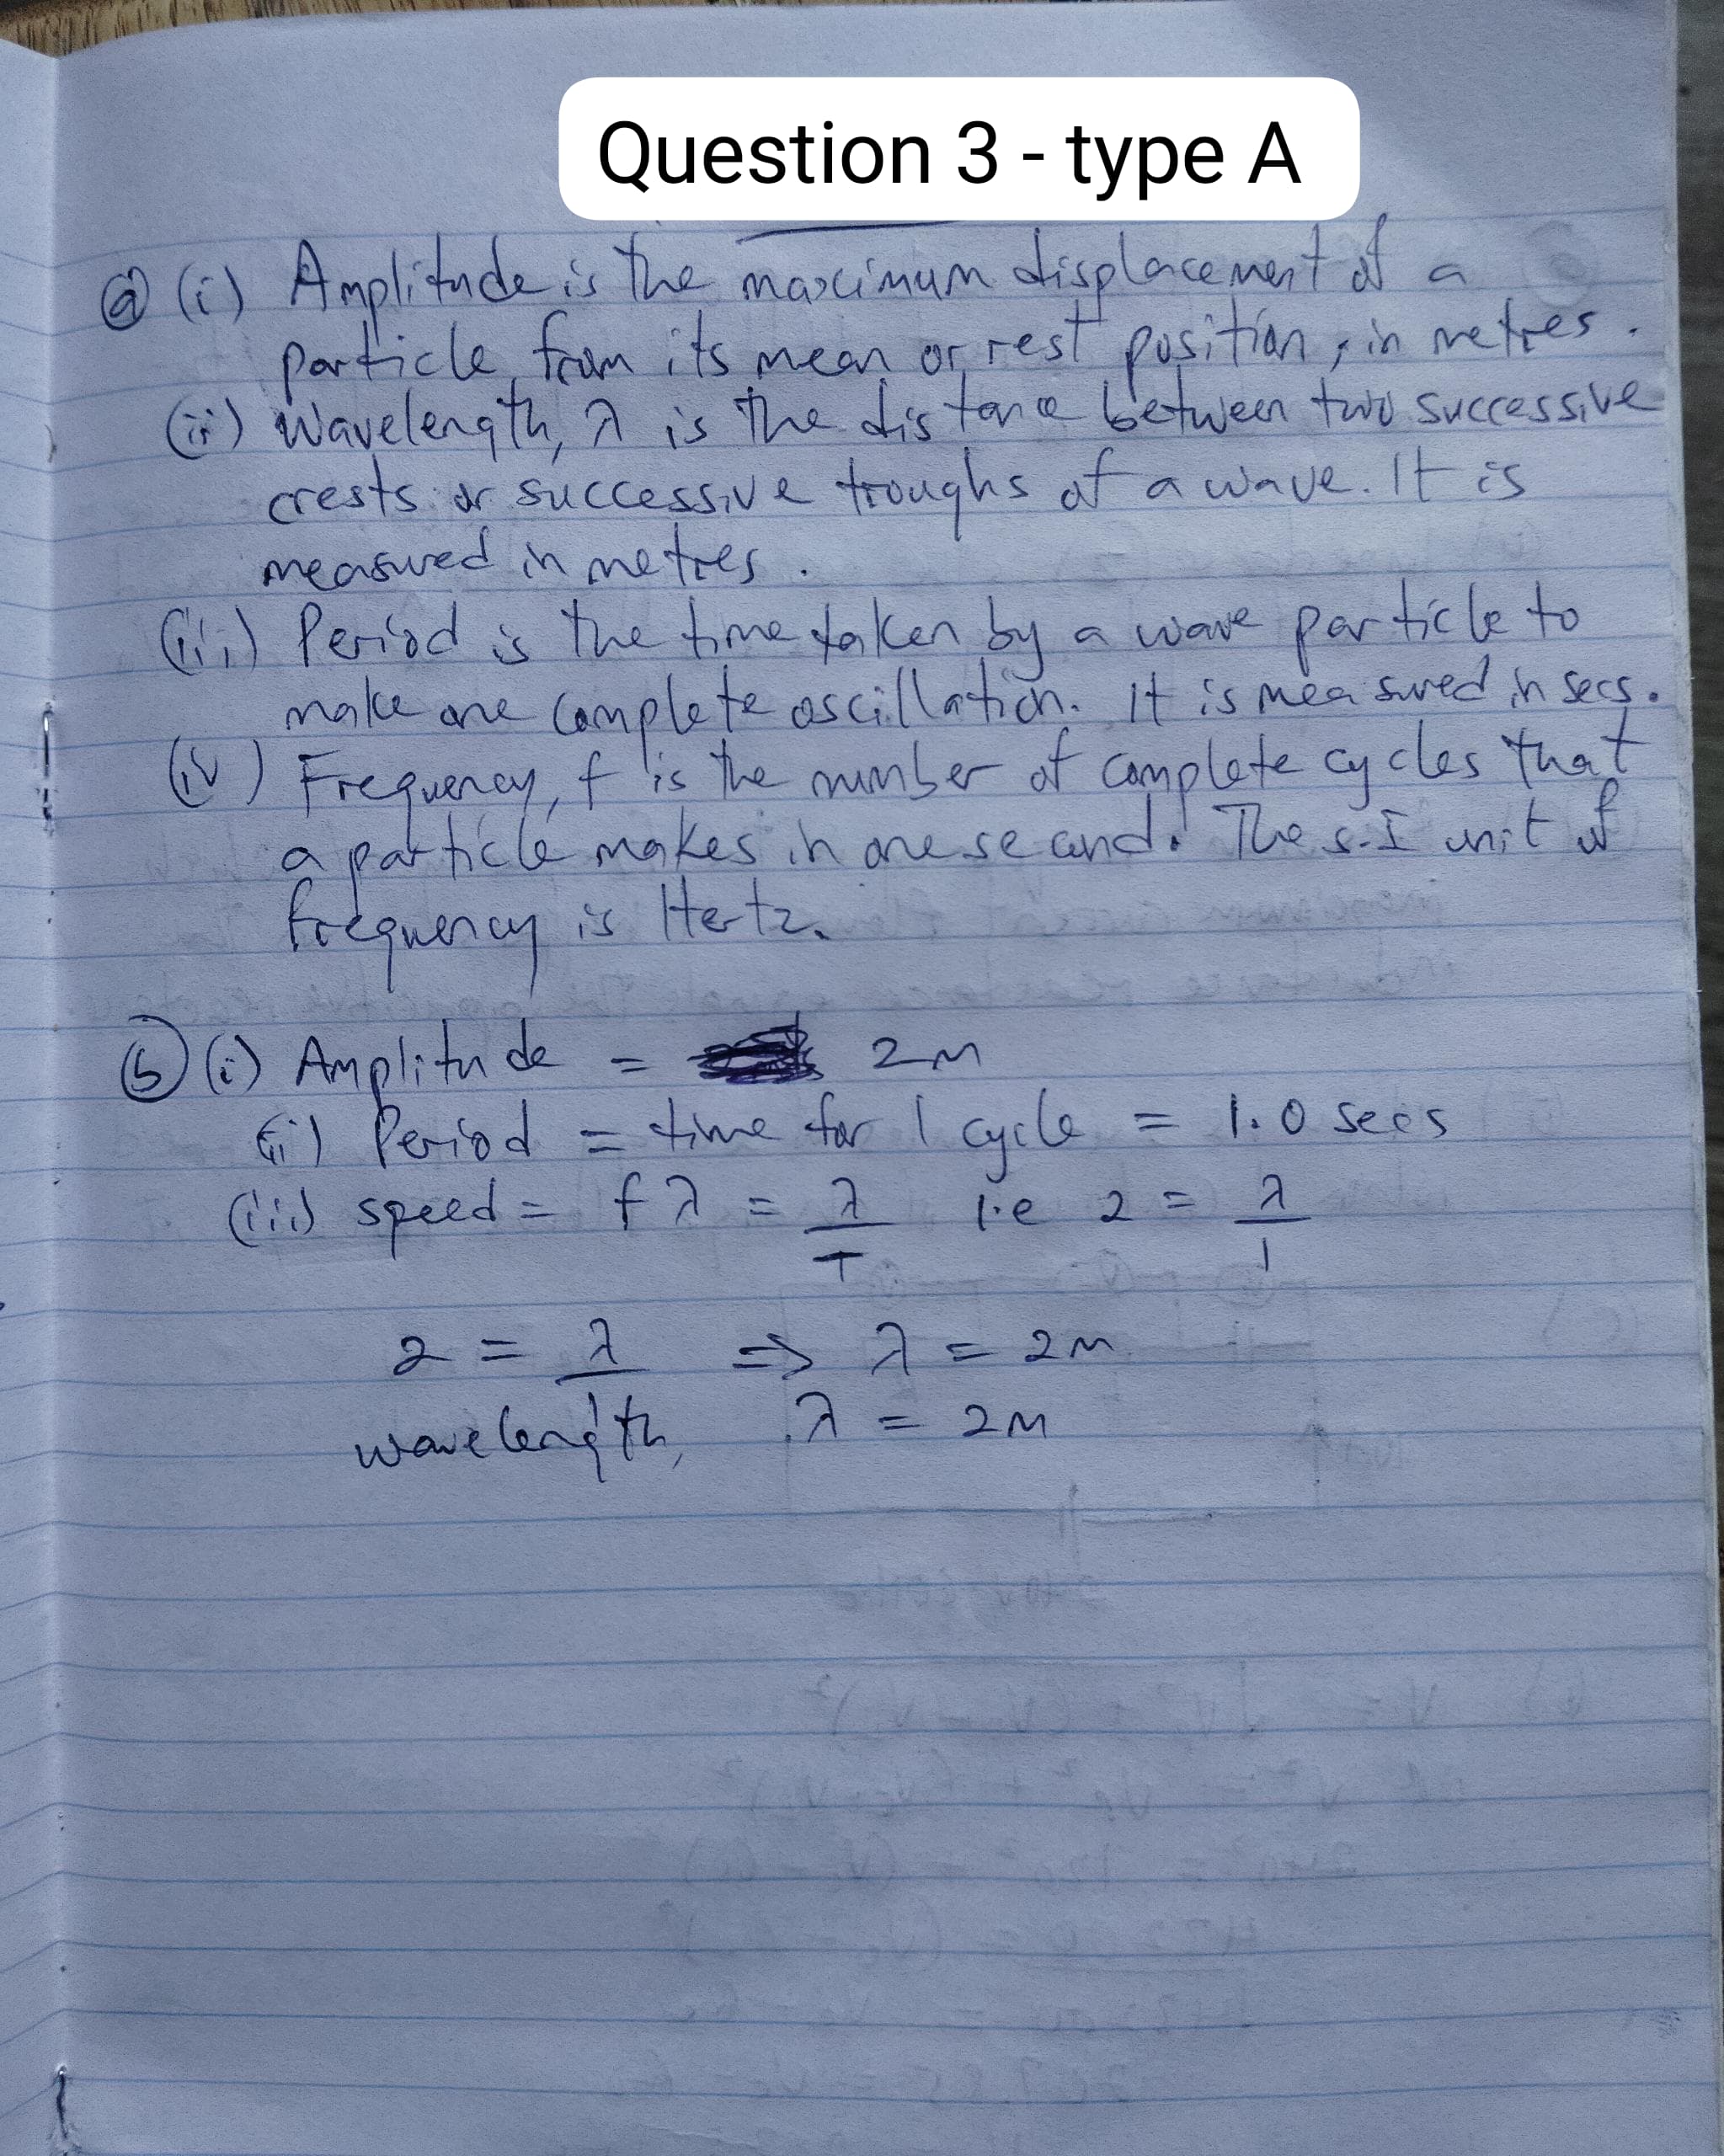 Question 3 - type A
ⓐ (i) Amplitude is the maximum displacement of a
particle from its mean or rest position, in metres.
(ii) Wavelength, λ is the distance between two successive
crests or successive troughs of a wave. It is
measured in metres.
(iii) Period is the time taken by a wave particle to
make one complete oscillation. It is measured in secs.
(iv) Frequency, f is the number of complete cycles that
a particle makes in one second. The s.I unit of
frequency is Hertz.
ⓑ (i) Amplitude = 2m
(ii) Period = time for 1 cycle = 1.0 secs
(iii) speed = fλ = λ/T i.e 2 = λ/1
2 = λ/1 => λ = 2m
wavelength, λ = 2m